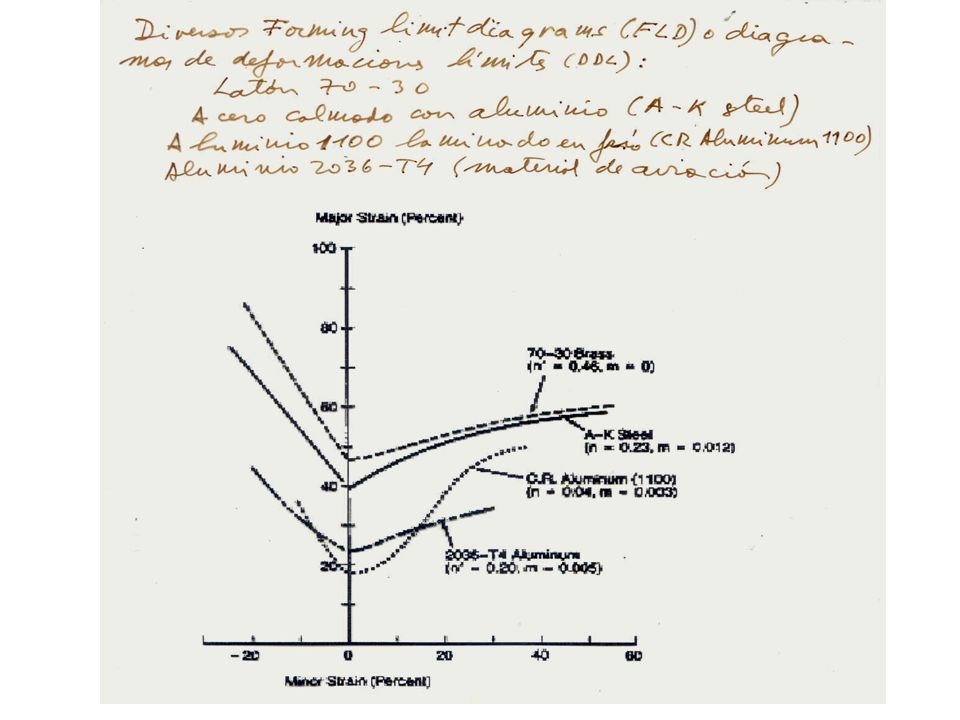 Diversos Forming limit diagrams (FLD) o diagra-
mas de deformacions límites (DDL):
Latón 70-30
Acero calmado con aluminio (A-K steel)
Aluminio 1100 laminado en frío (CR Aluminum 1100)
Aluminio 2036-T4 (material de aviación)
Major Strain (Percent)
100
80
70-30 Brass
(n' = 0.46, m = 0)
60
A-K Steel
(n = 0.23, m = 0.012)
C.R. Aluminum (1100)
40
(n = 0.04, m = 0.003)
2036-T4 Aluminum
20
(n' = 0.20, m = 0.005)
-20 0 20 40 60
Minor Strain (Percent)